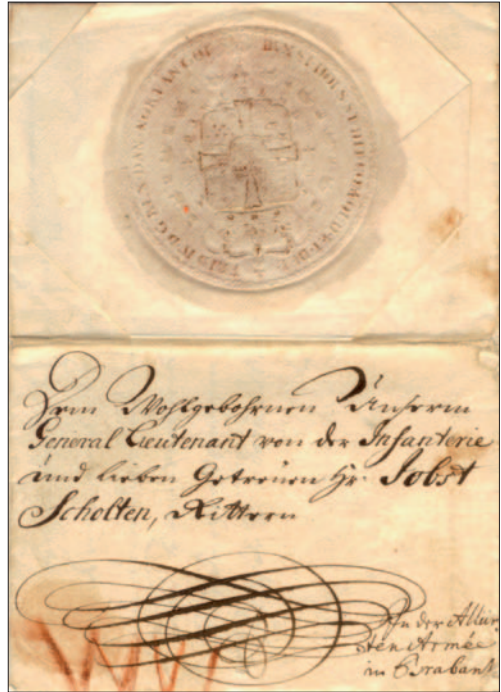 Dem Wohlgebohrnen Unserm
General Lieutenant von der Infanterie
und lieben Getreuen Hr. Jobst
Scholten, Rittern
An der Alliir-
ten Armée
in Braband